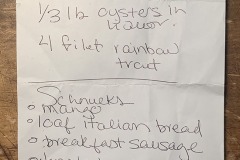 1/3 lb oysters in
liquor.
4 filet rainbow
trout
Schnucks
• mango
• loaf italian bread
• breakfast sausage